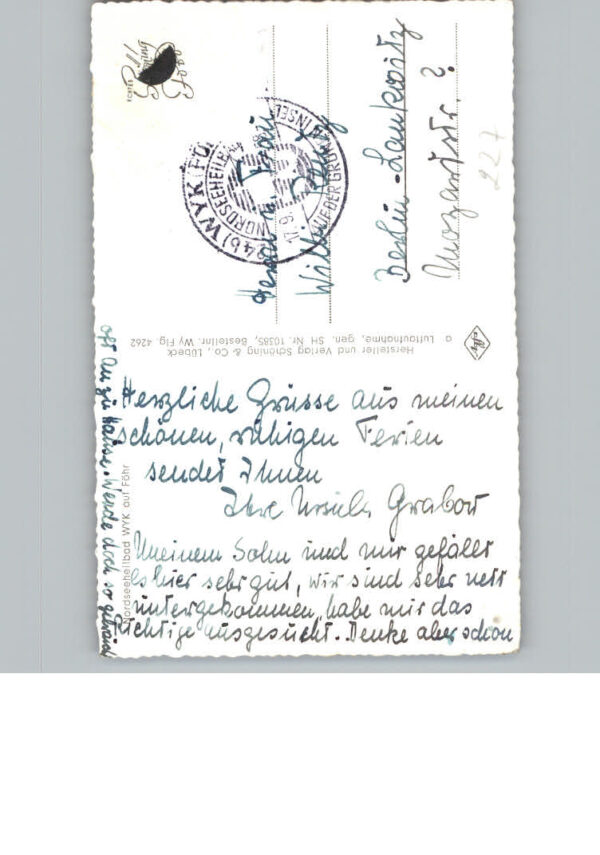 Herzliche Grüsse aus meinen
schönen, ruhigen Ferien
sendet Ihnen
Ihre Ursula Grabow
Meinem Sohn und mir gefällt
es hier sehr gut, wir sind sehr nett
untergekommen, habe mir das
Richtige ausgesucht. Denke aber schon
oft an zu Hause. Werde doch so gebraucht
Nordseeheilbad WYK auf Föhr
Hersteller und Verlag Schöning & Co., Lübeck
a Luftaufnahme, gen. SH Nr. 10385, Bestellnr. Wy Flg. 4262
(24b) WYK (FÖ
NORDSEEHEILBAD
AUF DER GRÜNEN INSEL
17.9.
Herrn u. Frau
Willi
Berlin-Lankwitz
Mozartstr. ?
227